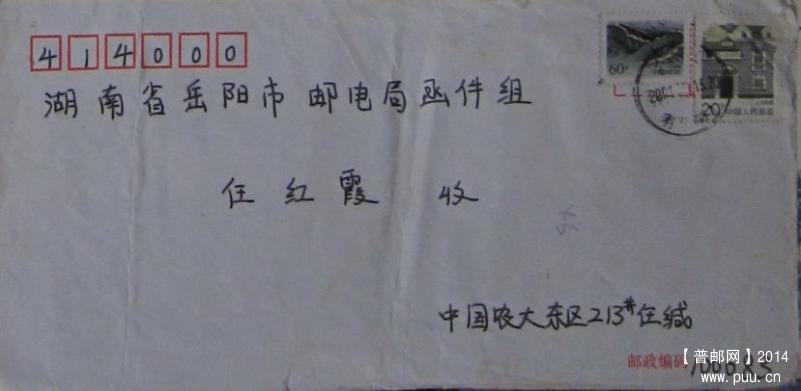 414000
湖南省岳阳市邮电局函件组
任红霞 收
60分
20分 中国人民邮政
中国农大东区213#任缄
邮政编码 100083
【普邮网】2014
www.puu.cn